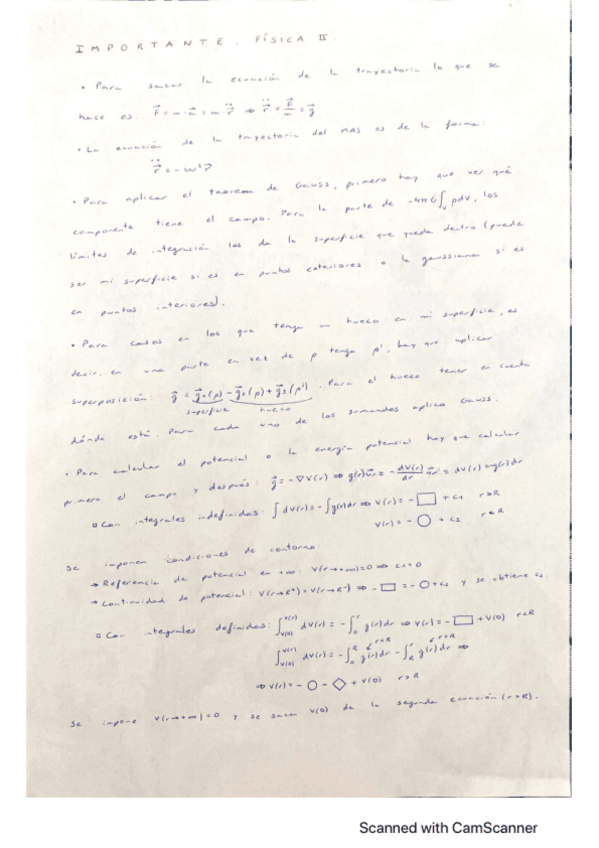 IMPORTANTE. FÍSICA II.
• Para sacar la ecuación de la trayectoria lo que se
hace es: F⃗ = m·a⃗ = m r⃗̈ ⇒ r⃗̈ = F⃗/m = g⃗
• La ecuación de la trayectoria del MAS es de la forma:
r⃗̈ = -ω² r⃗
• Para aplicar el teorema de Gauss, primero hay que ver qué
componente tiene el campo. Para la parte de -4πG∫ᵥ ρdV, los
límites de integración los da la superficie que queda dentro (puede
ser mi superficie si es en puntos exteriores o la gaussiana si es
en puntos interiores).
• Para casos en los que tenga un hueco en mi superficie, es
decir, en una parte en vez de ρ tenga ρ', hay que aplicar
superposición: g⃗ = g⃗₁(ρ) - g⃗₂(ρ) + g⃗₃(ρ'). Para el hueco tener en cuenta
superficie hueco
dónde está. Para cada uno de los sumandos aplico Gauss.
• Para calcular el potencial o la energía potencial hay que calcular
primero el campo y después: g⃗ = -∇V(r) ⇒ g(r)u⃗r = -dV(r)/dr u⃗r ⇒ dV(r) = -g(r)dr
▫ Con integrales indefinidas: ∫dV(r) = -∫g(r)dr ⇒ V(r) = -□ + c₁ r>R
V(r) = -○ + c₂ r<R
Se imponen condiciones de contorno:
→ Referencia de potencial en +∞: V(r→+∞)=0 ⇒ c₁=0
→ Continuidad de potencial: V(r→R⁺) = V(r→R⁻) ⇒ -□ = -○+c₂ y se obtiene c₂.
▫ Con integrales definidas: ∫_{V(0)}^{V(r)} dV(r) = -∫₀^r g(r)dr ⇒ V(r) = -□ + V(0) r<R
r<R r>R
∫_{V(0)}^{V(r)} dV(r) = -∫₀^R g(r)dr - ∫_R^r g(r)dr ⇒
⇒ V(r) = -○ - ◇ + V(0) r>R
Se impone V(r→+∞)=0 y se saca V(0) de la segunda ecuación (r>R).
Scanned with CamScanner